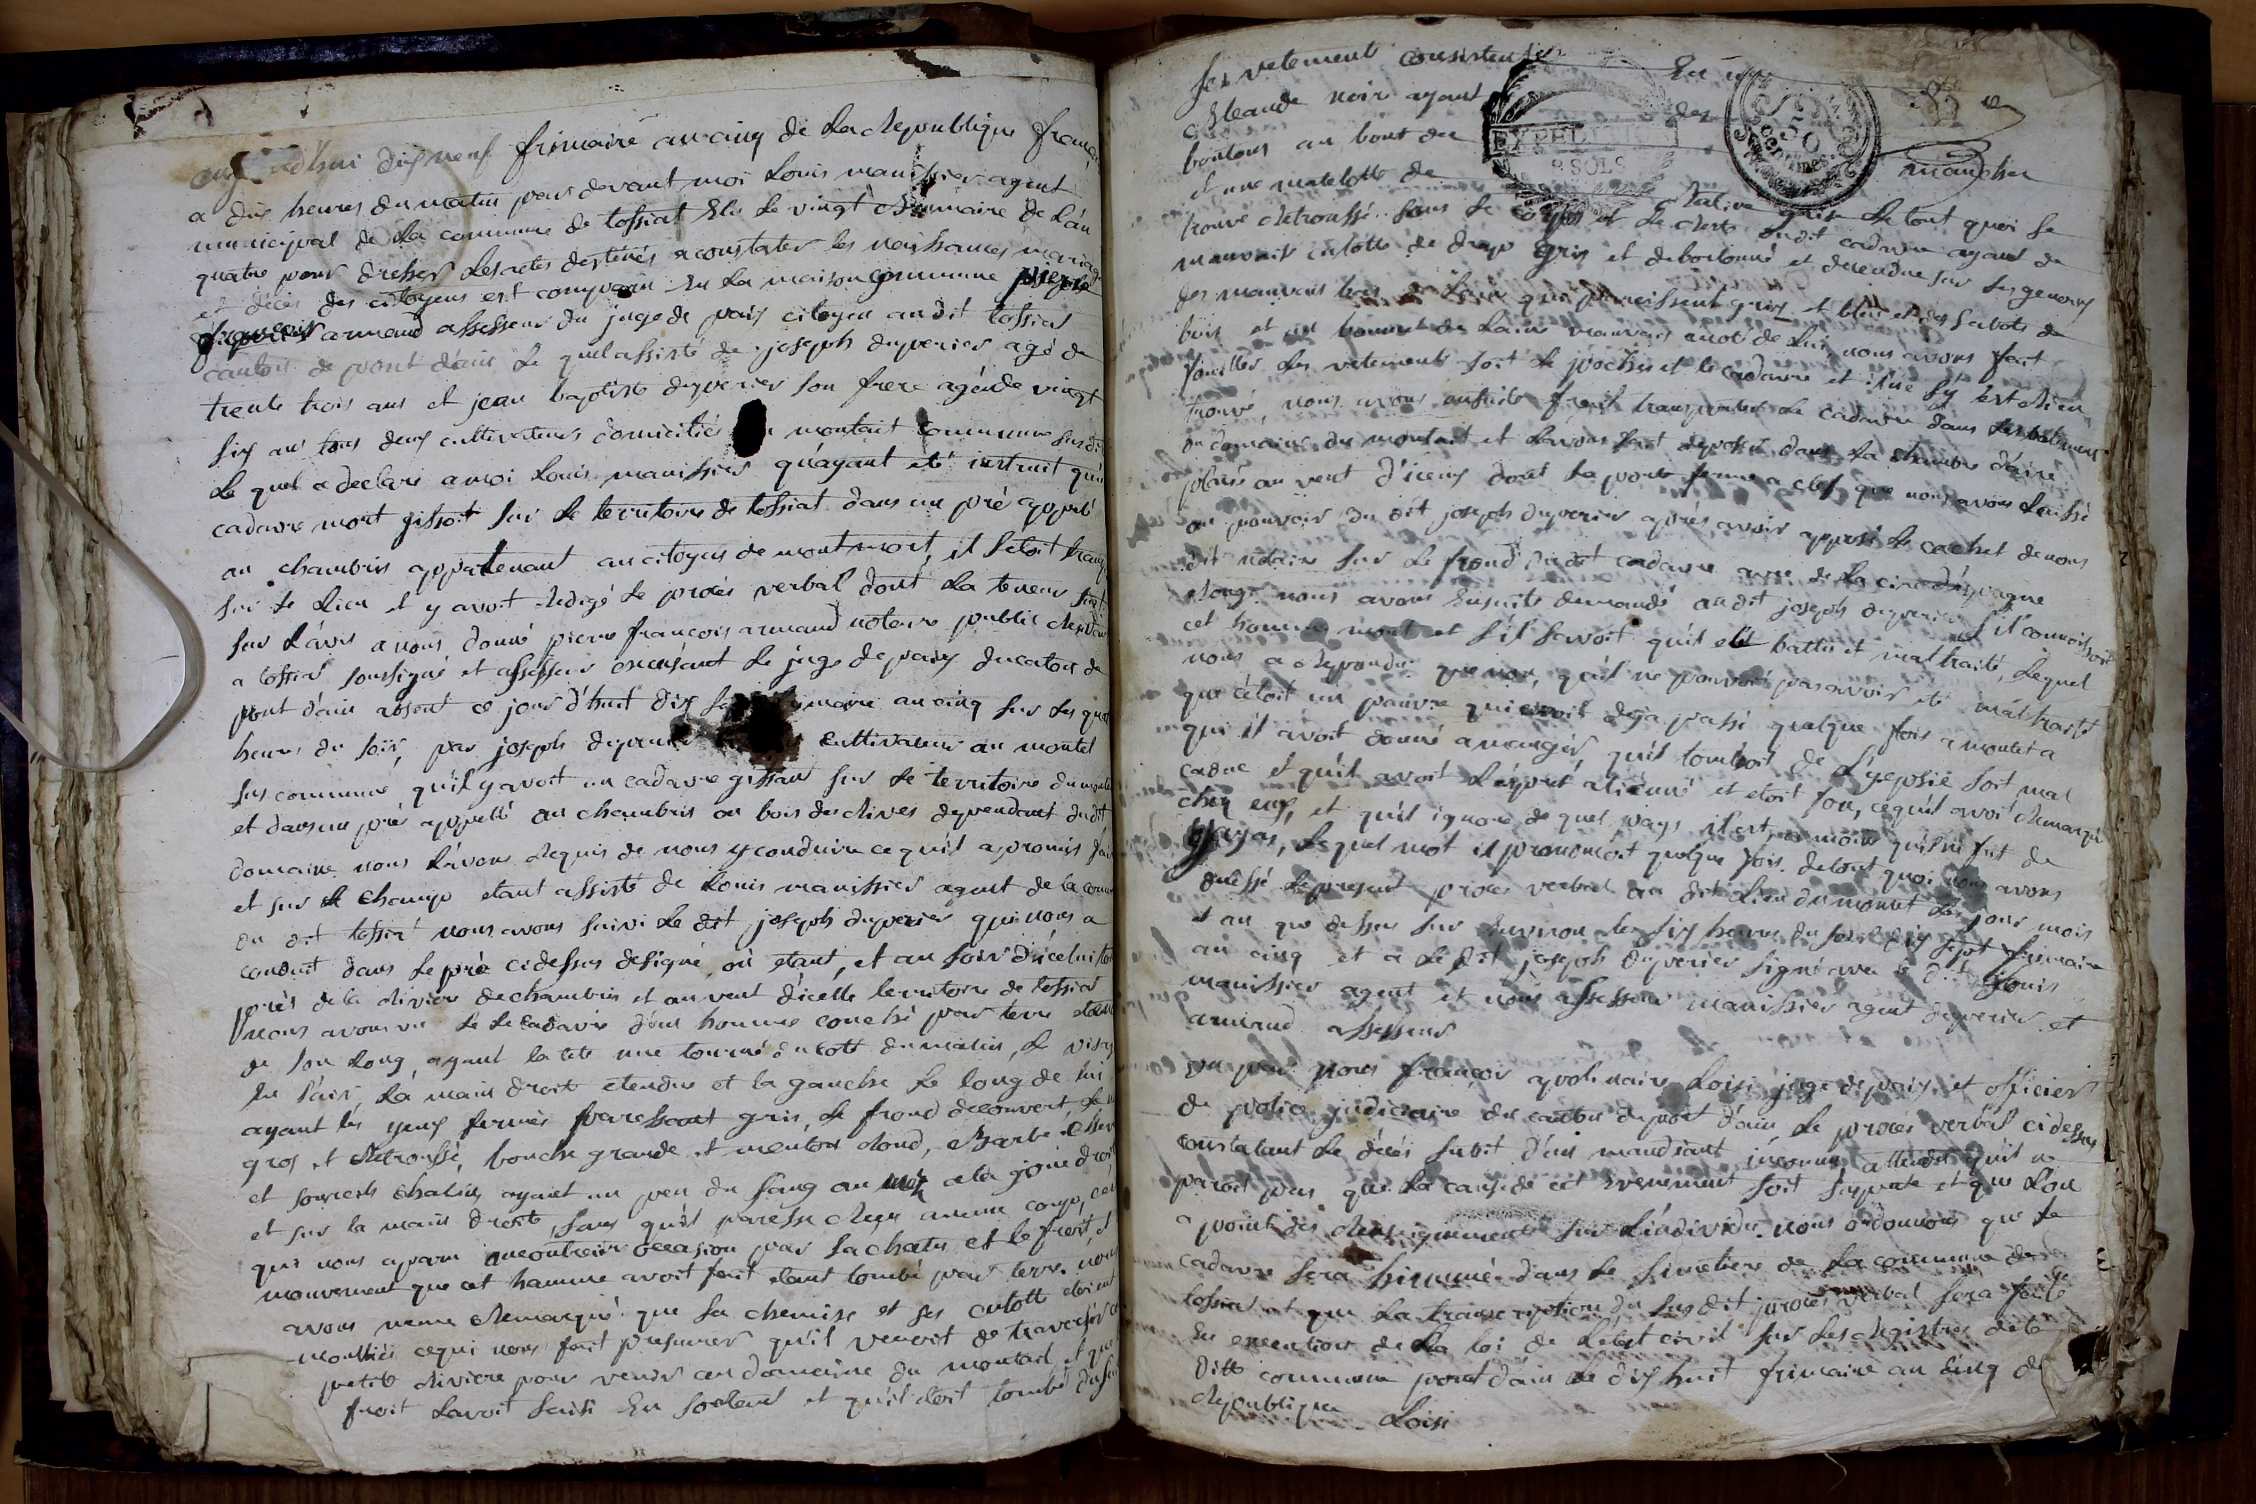 aujourd'hui dix neuf frimaire an cinq de la republique franç
a dix heures du matin par devant moi Louis manissier agent
municipal de la commune de tossiat Elu le vingt Brumaire de l'an
quatre pour dresser les actes destinés a constater les naissances mariage
et décés des citoyens est comparu En la maison commune pierre
françois armand assesseur du juge de paix citoyen audit tossiat
canton de pont d'ain le quel assisté de joseph duperier agé de
trente trois ans et jean baptiste duperier son frere agé de vingt
six ans tous deux cultivateurs domiciliés montait commune susdit
le quel a declaré a moi Louis manissier qu'ayant eté instruit qu'un
cadavre mort gissoit sur le territoire de tossiat dans un pré appelé
au chambris appartenant au citoyen de montmort, il s'etoit transp
sur le lieu et y avoit redigé le procès verbal dont la teneur suit
sur l'avis a nous donné pierre francois armand notaire public residant
a tossiat soussigné et assesseur excusant le juge de paix du canton de
pont d'ain absent ce jour d'huit dix frimaire an cinq sur les quatre
heures du soir, par joseph duperier cultivateur au montet
sus commune, qu'il y avoit un cadavre gissant sur le territoire du montet
et dans un pré appellé au chambris ou bois des rives dependant dudit
domaine nous l'avons requis de nous y conduire ce qu'il a promis faire
et sur le champ etant assisté de Louis manissier agent de la comm
du dit tossiat nous avons suivi le dit joseph duperier qui nous a
conduit dans le pré cidessus designé, où etant, et au soir d'icelui
près de la riviere de chambris et au vent d'icelle territoire de tossiat
nous avons vu le le cadavre d'un homme couché par terre etendu
de son long, ayant la tete nue tourné du coté du matin, le visag
en l'air, la main droit etendue et la gauche le long de lui
ayant les yeux fermés paressant gris, le frond decouvert, le
gros et retroussé, bouche grande et menton rond, Barbe
et sourcils chatin ayant un peu du sang au nez a la joüe droit
et sur la main droite, sans qu'il paresse reçu aucun coup, ce
qui nous a paru occasion par sa chute et le froit, et
mouvement que cet homme avoit fait etant tombé par terre nous
avons meme remarqué que sa chemise et ses culotte etoient
moullées ce qui nous fait presumer qu'il venoit de traverser
petite riviere pour venir au domaine du montait, et que
froit l'avoit saisi En sortant et qu'il etoit tombé
ses vetement consistent En
Blaude noir ayant des
boutons au bout des mancher
et une matelotte de
trouve retroussé sous le corps et le reste dudit cadavre ayant de
mauvais culotte de drap gris et deboutonné et decendue sur ses genoux
des mauvais bas de laine qui paroissent gris et bleu et des sabots de
bois et un bonnet de laine mauvais a coté de lui, nous avons fait
fouiller les vetements soit le poches et le cadavre et il ne s'y est rien
trouvé, nous avons ensuite frait transporter le cadavre dans les batiments
du domaine du montait et l'avons fait deposé dans la chambre d'aire
placée au vent d'iceux dont la porte ferme a clef que nous avons laissé
au pouvoir du dit joseph duperier après avoir apposé le cachet de nous
dit notaire sur le frond dudit cadavre avec de la cire d'espagne
rouge nous avons Ensuite demandé audit joseph duperier s'il connoissoit
cet homme mort et s'il savoit qu'il eut battu et maltraité, lequel
nous a repondu que non, qu'il ne pouvoit pas avoir eté maltraité
que c'étoit un pauvre qui avoit deja passé quelque fois a montet a
qui il avoit donné a manger, qu'il tomboit de l'epepsie soit mal
caduc et qu'il avoit l'esprit aliénné et etoit fou, ce qu'il avoit remarqué
chez eux, et qu'il ignore de quel pays il est, a moins qu'il ne fut de
lequel mot il prononcoit quelque fois. de tout quoi nous avons
dressé le present procès verbal au dit lieu du montet les jour mois
et an que dessus sur Environ les six heures du soir dix sept frimaire
an cinq et a le dit joseph duperier signé avec le dit Louis
manissier agent et nous assesseur manissier agent duperier et
armand assesseur
vu par nous francois apolinaire Loisi juge de paix et officier
de police judiciaire du canton de pont d'ain le procès verbal cidessus
constatant le décés subit d'un mandiant inconnu, attendu qu'il ne
paroit pas que la cause de cet evenement soit suspecte et que l'on
a point des renseignements sur l'individu. nous ordonnons que le
cadavre sera hinumé dans le simetiere de la commune de
tossiat et que la transcription du susdit procès verbal sera faite
En execution de la loi de l'etat civil sur les registres de la
ditte commune pont d'ain le dix huit frimaire an cinq de
republique Loisi